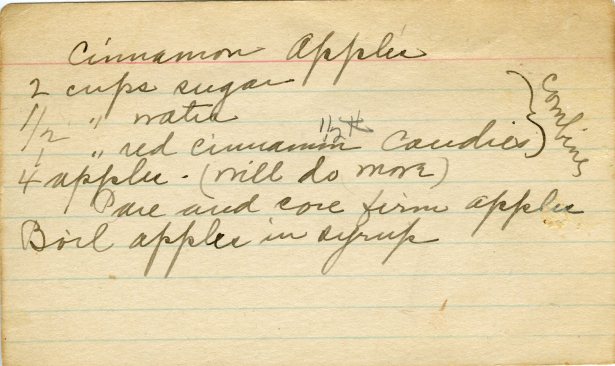 Cinnamon Apples
2 cups sugar
1/2 " water
1/2 #
1 " red cinnamon candies
Combine
4 apples - (will do more)
Pare and core firm apples
Boil apples in syrup